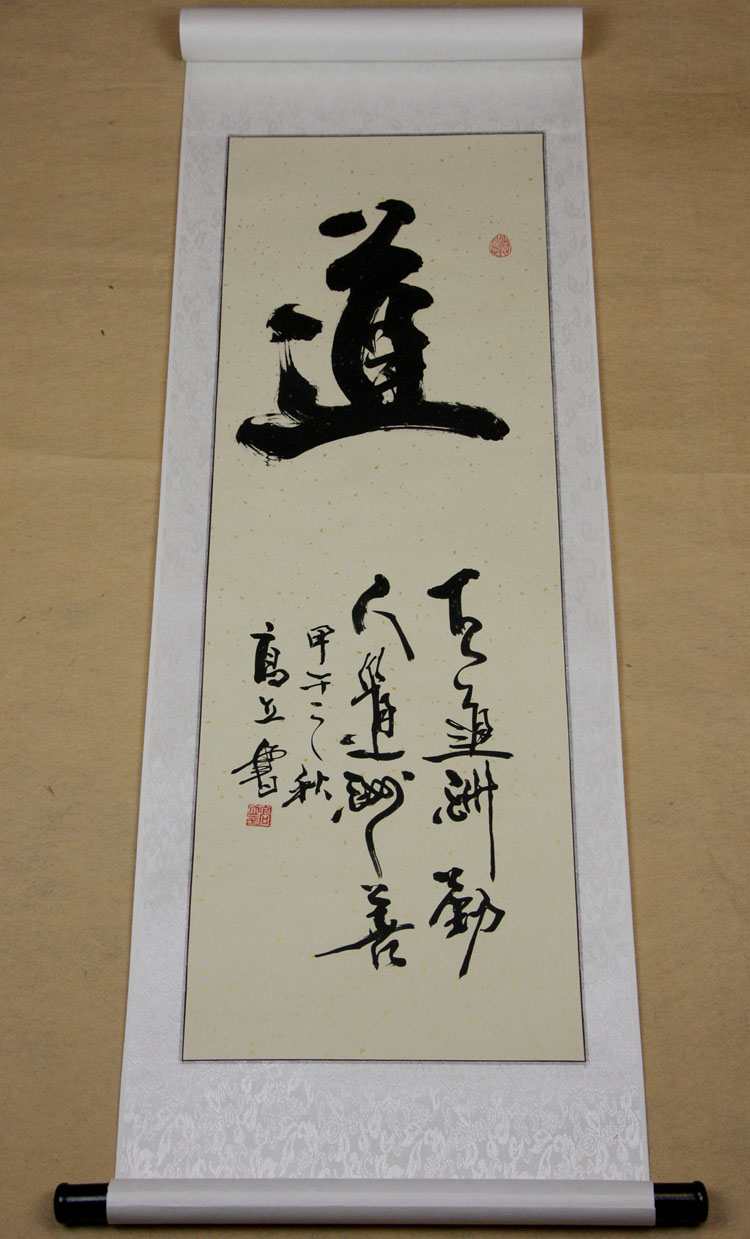 道
天道酬勤
人道酬善
甲午之秋
高立書